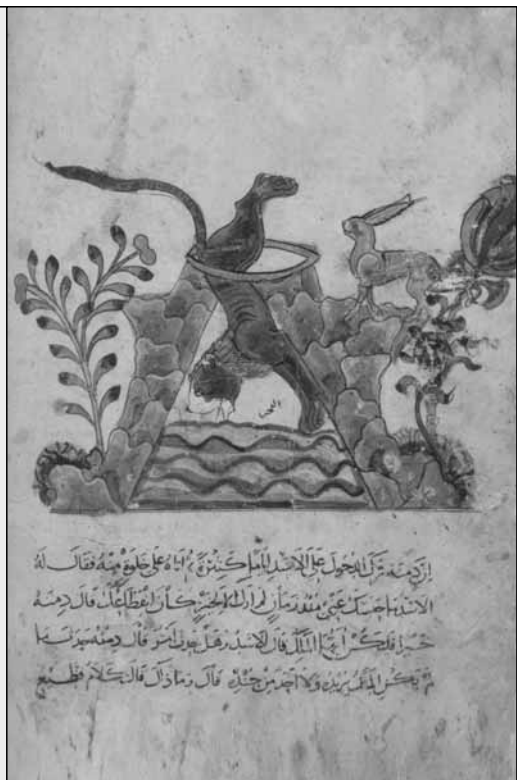 دمنة ترك الدخول على الاسد اياما كثيرة ثم اتاه على خلوة منه فقال له
الاسد ما حبسك عني منذ زمان لم ارك الخير كان انقطاعك قال دمنه
خيرا فليكن ايها الملك قال الاسد وهل حدث امر قال دمنه حدث ما
لم يكن الملك يريده ولا احد من جنده قال وما ذاك قال كلام فظيع